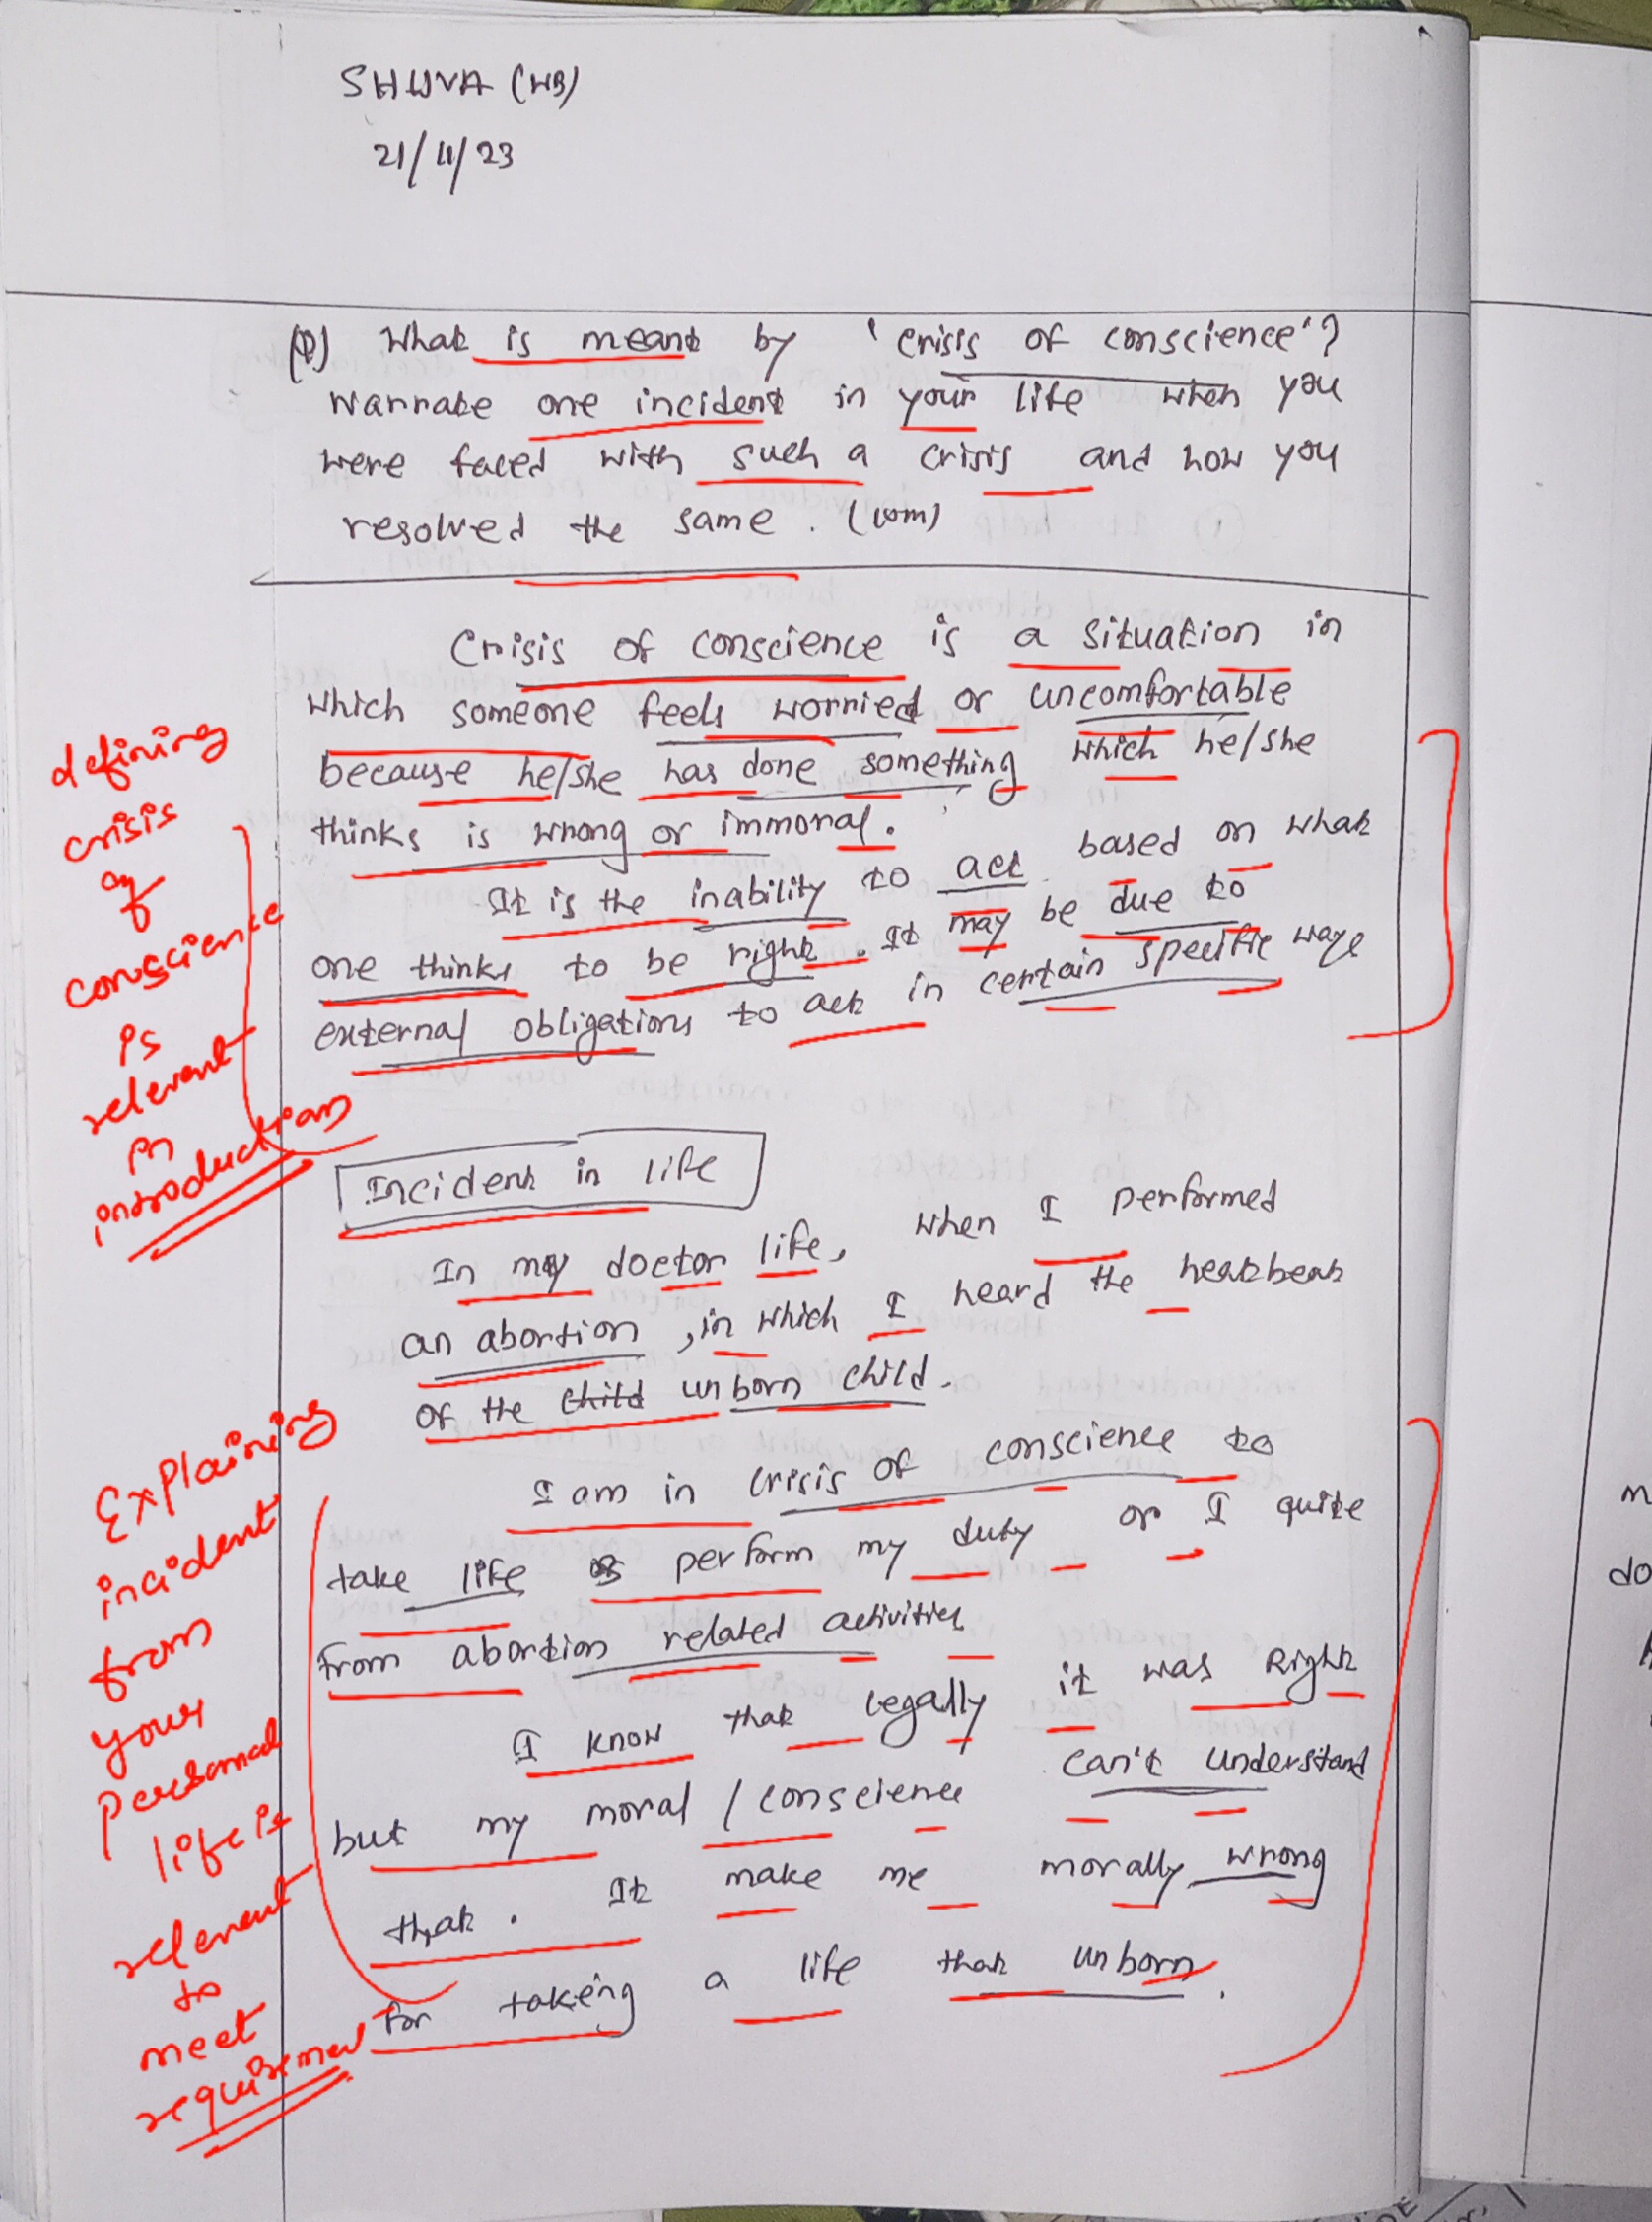 SHUVA (WB)
21/11/23
(Q) What is meant by 'crisis of conscience'?
Warrate one incident in your life when you
were faced with such a crisis and how you
resolved the same. (10m)
Crisis of conscience is a situation in
which someone feels worried or uncomfortable
because he/she has done something which he/she
thinks is wrong or immoral.
It is the inability to act based on what
one thinks to be right. It may be due to
external obligations to act in certain specific ways
defining
crisis
of
conscience
is
relevant
in
introduction
Incident in life
In my doctor life, when I performed
an abortion, in which I heard the heatbeat
of the child unborn child.
I am in crisis of conscience to
take life or perform my duty or I quite
from abortion related activities
I know that legally it was Right
but my moral / conscience can't understand
that. It make me morally wrong
for taking a life that unborn.
Explaining
incident
from
your
personal
life is
relevant
to
meet
requirement
m
do